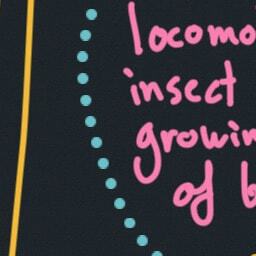 locomo
insect
growin
of b